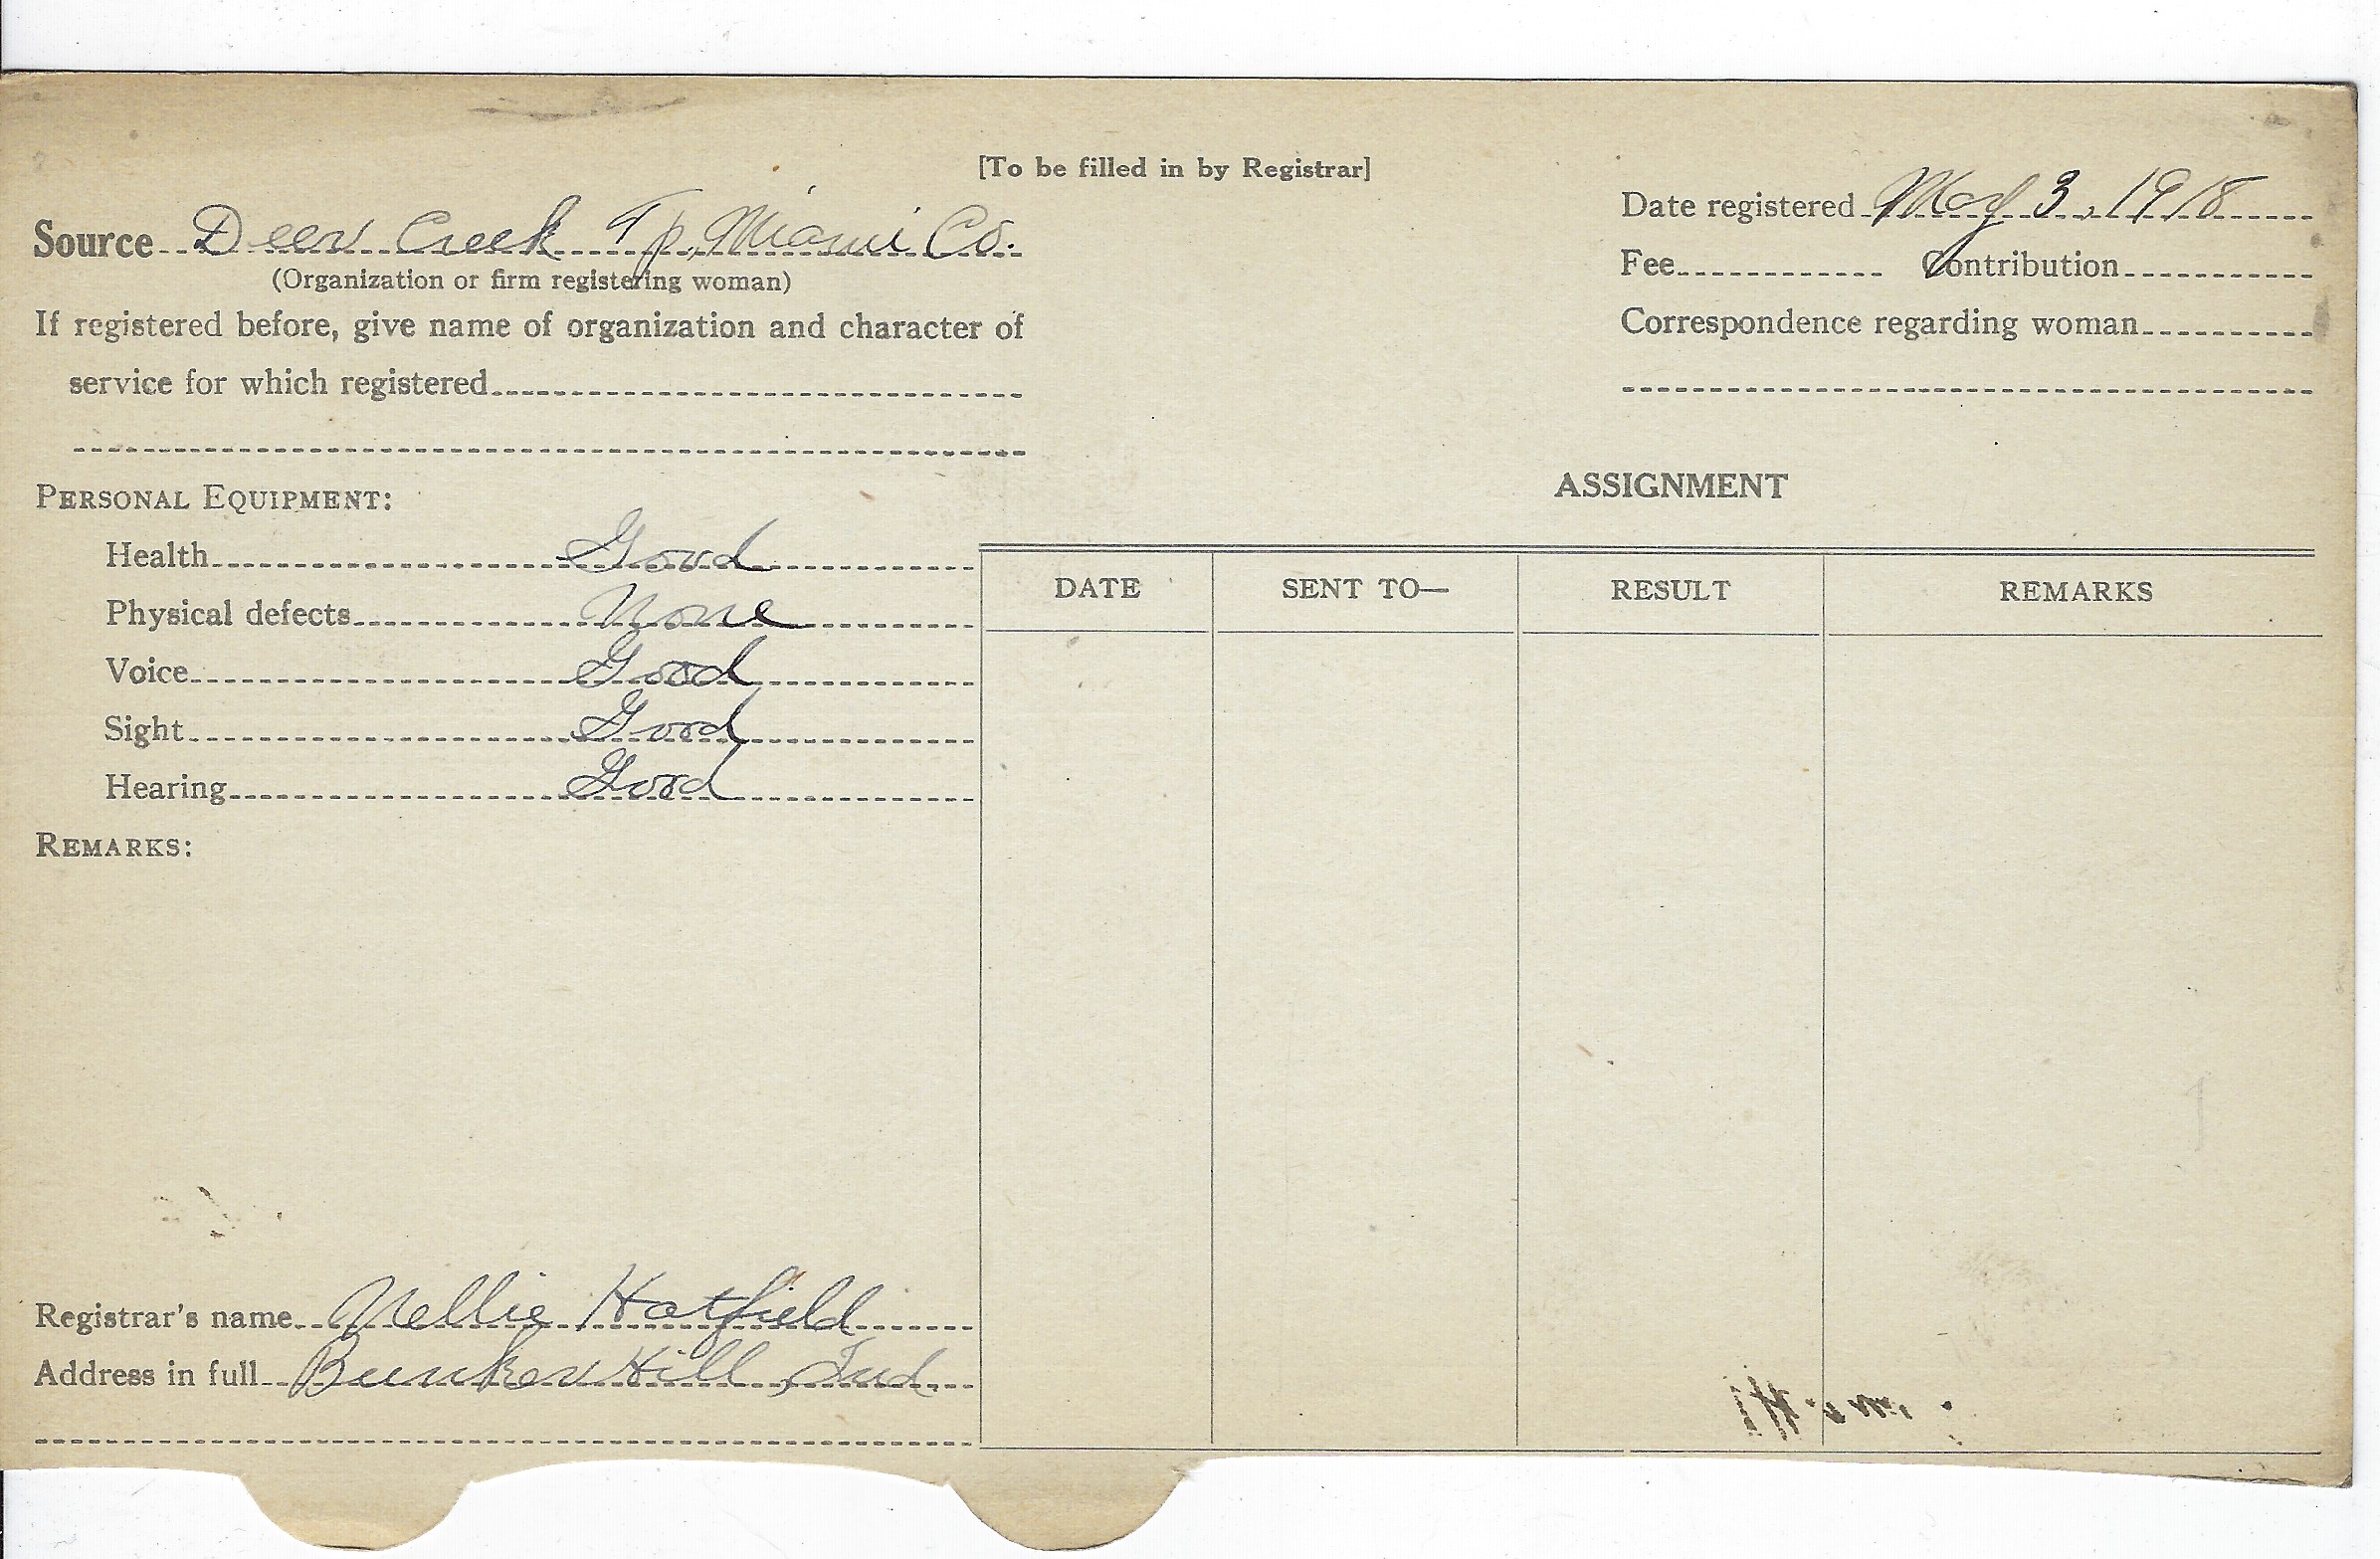 [To be filled in by Registrar]
Source Deer Creek Tp, Miami Co.
(Organization or firm registering woman)
If registered before, give name of organization and character of
service for which registered
Date registered May 3, 1918
Fee Contribution
Correspondence regarding woman
PERSONAL EQUIPMENT:
Health Good
Physical defects None
Voice Good
Sight Good
Hearing Good
REMARKS:
Registrar's name Nellie Hatfield
Address in full Bunker Hill, Ind.
ASSIGNMENT
DATE SENT TO— RESULT REMARKS